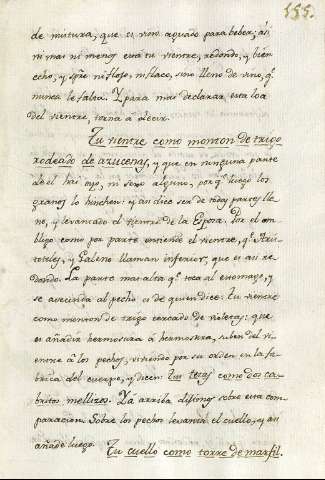 155.
de mistura, que es vino aguado para beber; asi
ni mas ni menos está tu vientre, redondo, y bien
echo, y spre. ni flojo, ni flaco, sino lleno de vino, q.
nunca le falta. Y para mas declarar esta loa
del vientre, torna à decir.
Tu vientre como monton de trigo
rodeado de azucenas, y que en ninguna parte
de el hai oyo, ni seno alguno, porq. luego los
granos lo hinchen: y asi dice ser de todas partes lle
no, y levantado el vientre de la Esposa. Por el om-
bligo como por parte entiende el vientre, q. Aris-
toteles, y Galeno llaman inferior, que es asi re-
dondo. La parte mas alta q. toca al estomago, y
se avecinda al pecho es de quien dice: tu vientre
como monton de trigo cercado de violetas: que
es añadir hermosura à hermosura, suben del vi-
entre à los pechos, viniendo por su orden en la fa-
brica del cuerpo, y dicen: tus tetas como dos ca-
britos mellizos. Ya arriba dijimos sobre esta com-
paracion. Sobre los pechos levanta el cuello, y asi
añade luego. Tu cuello como torre de marfil.